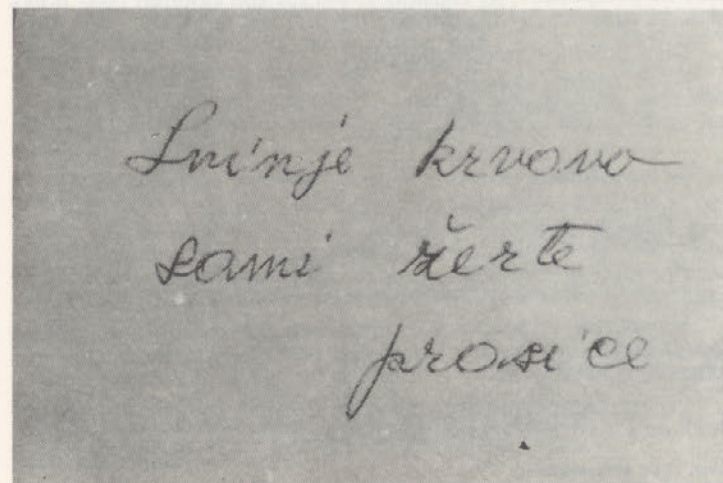 Svinje krvavo
sami žerte
prasice